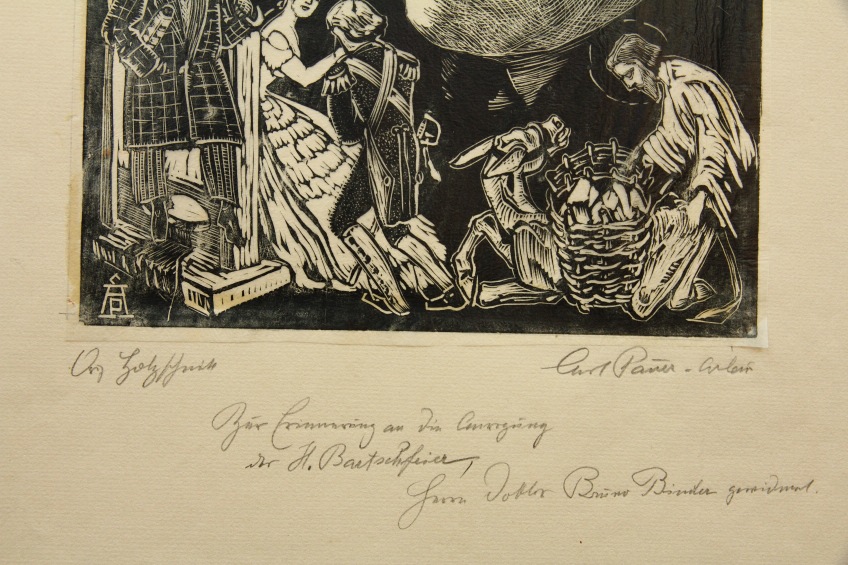 Org Holzschnitt
Curt Pauer - Arlau
Zur Erinnerung an die Anregung
der H. Bartschfeier,
Herrn Doktor Bruno Binder gewidmet.